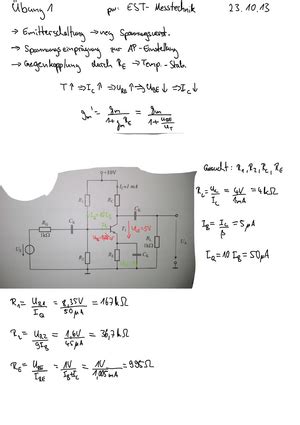 Übung 1 pw. EST-Messtechnik 23.10.13
→ Emitterschaltung → neg Spannungsverst.
→ Spannungseinprägung zur AP-Einstellung
→ Gegenkopplung durch R_E → Temp.-Stab.
T↑ ⇒ I_C↑ ⇒ U_RE↑ ⇒ U_BE↓ ⇒ I_C↓
g_m' = g_m / (1 + g_m R_E) = g_m / (1 + U_RE / U_T)
gesucht: R_1, R_2, R_C, R_E
R_C = U_RC / I_C = 4V / 1mA = 4kΩ
I_B = I_C / β = 5µA
I_Q = 10 I_B = 50µA
R_1 = U_R1 / I_Q = 8,35V / 50µA = 167kΩ
R_2 = U_R2 / 9I_B = 1,65V / 45µA = 36,7kΩ
R_E = U_RE / I_RE = 1V / (I_B + I_C) = 1V / 1,005mA = 995Ω